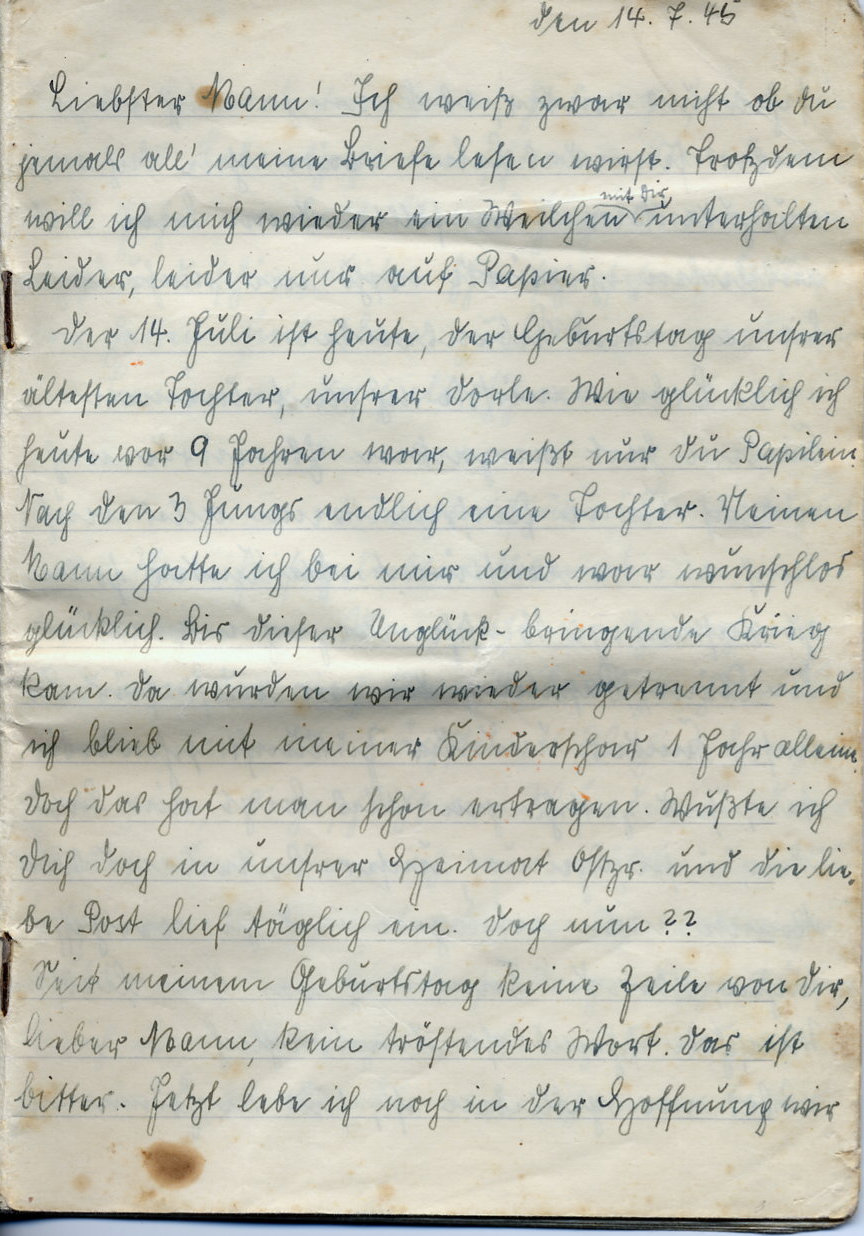 den 14. 7. 45
Liebster Mann! Ich weiß zwar nicht ob du
jemals all' meine Briefe lesen wirst. Trotzdem
mit Dir
will ich mich wieder ein Weilchen unterhalten
Leider, leider nur auf Papier.
Der 14. Juli ist heute, der Geburtstag unsrer
ältesten Tochter, unsrer Dorle. Wie glücklich ich
heute vor 9 Jahren war, weißt nur du Papilein.
Nach den 3 Jungs endlich eine Tochter. Meinen
Mann hatte ich bei mir und war wunschlos
glücklich. Bis dieser Unglück-bringende Krieg
kam. Da wurden wir wieder getrennt und
ich blieb mit meiner Kinderschar 1 Jahr allein.
Doch das hat man schon ertragen. Wußte ich
Dich doch in unsrer Heimat Ostpr. und die lie-
be Post lief täglich ein. Doch nun??
Seit meinem Geburtstag keine Zeile von Dir,
lieber Mann, kein tröstendes Wort. Das ist
bitter. Jetzt lebe ich noch in der Hoffnung wir